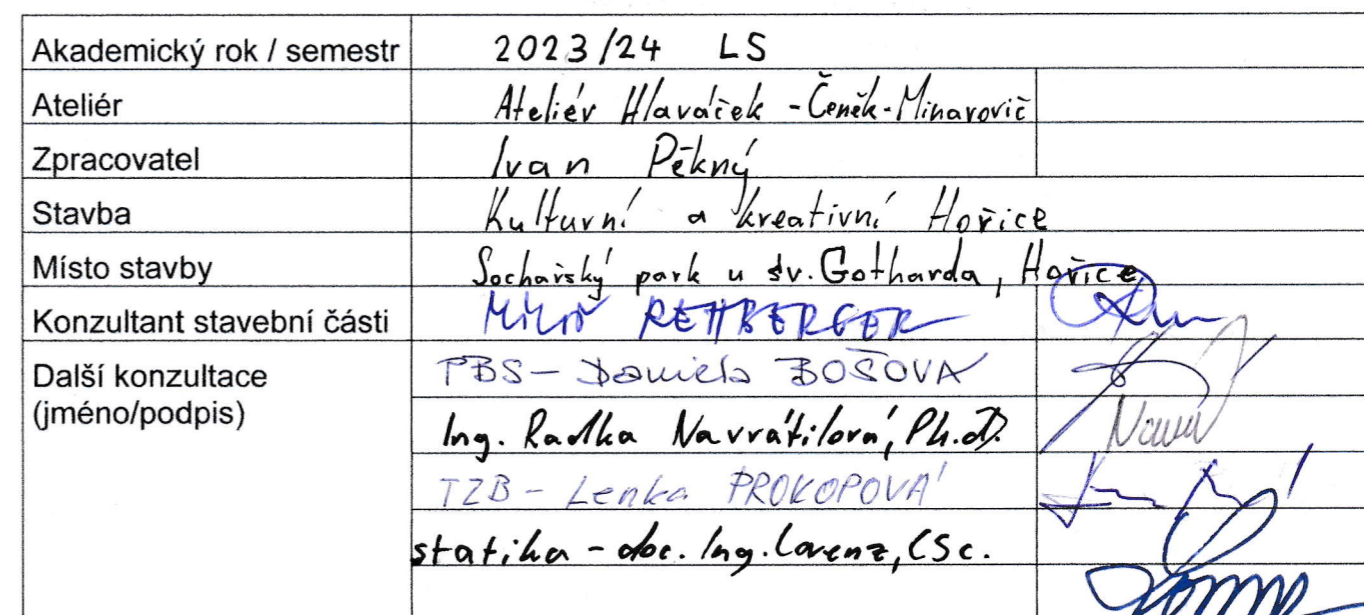 Akademický rok / semestr 2023/24 LS
Ateliér Ateliér Hlaváček - Čeněk - Minarovič
Zpracovatel Ivan Pěkný
Stavba Kulturní a kreativní Hořice
Místo stavby Sochařský park u sv. Gotharda, Hořice
Konzultant stavební části Miloš REHBERGER
Další konzultace PBS - Daniela BOŠOVA
(jméno/podpis) Ing. Radka Navrátilová, Ph.D.
TZB - Lenka PROKOPOVÁ
statika - doc. Ing. Lorenz, CSc.